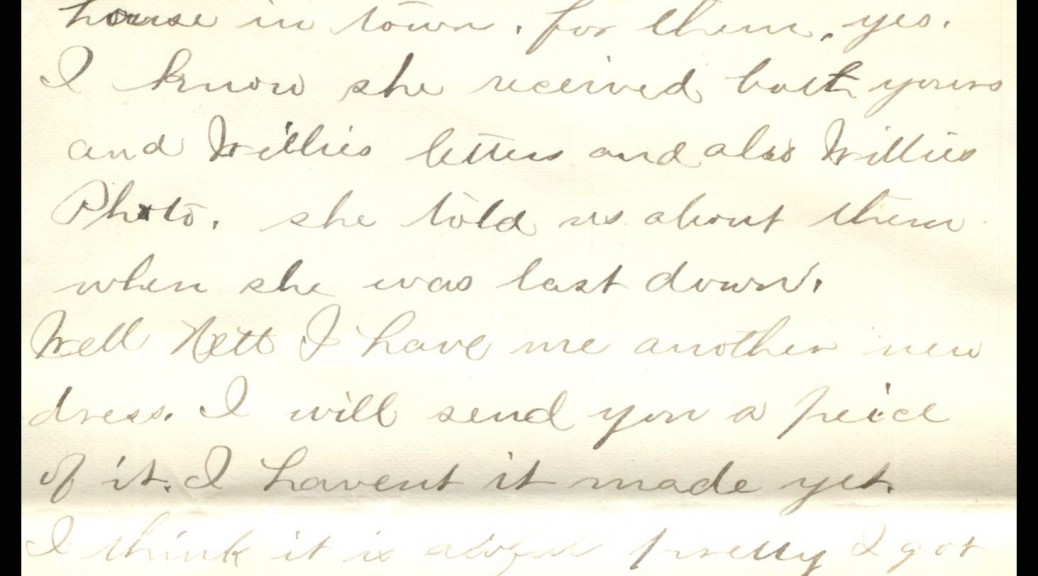 house in town. for them, yes.
I know she received both yours
and Willies letters and also Willies
Photo. she told us about them
when she was last down.
Well Nett I have me another new
dress. I will send you a peice
of it. I havent it made yet.
I think it is awful pretty I got